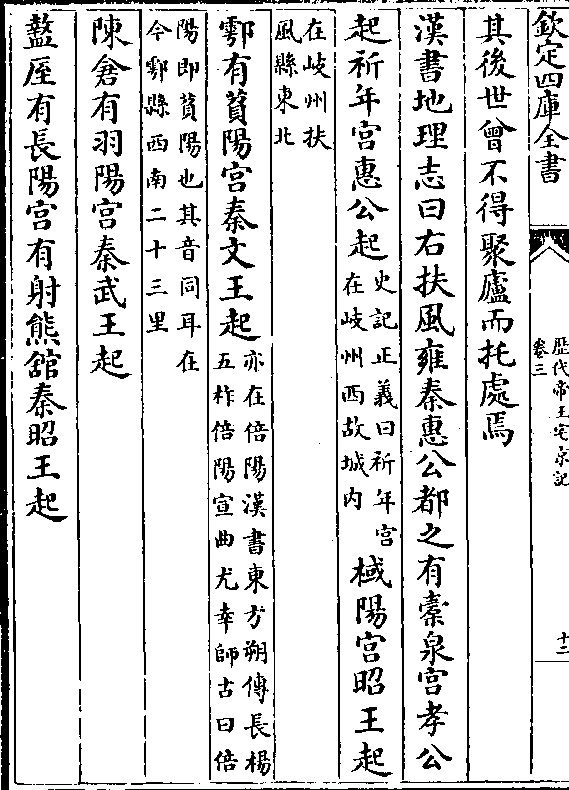 欽定四庫全書
歷代帝王宅京記
卷三
十二
其後世曾不得聚廬而托處焉
漢書地理志曰右扶風雍秦惠公都之有橐泉宫孝公
起祈年宫惠公起
史記正義曰祈年宫
在岐州西故城内
棫陽宫昭王起
在岐州扶
風縣東北
鄠有萯陽宫秦文王起
亦在倍陽漢書東方朔傳長楊
五柞倍陽宣曲尤幸師古曰倍
陽即萯陽也其音同耳在
今鄠縣西南二十三里
陳倉有羽陽宫秦武王起
盩厔有長陽宫有射熊舘秦昭王起